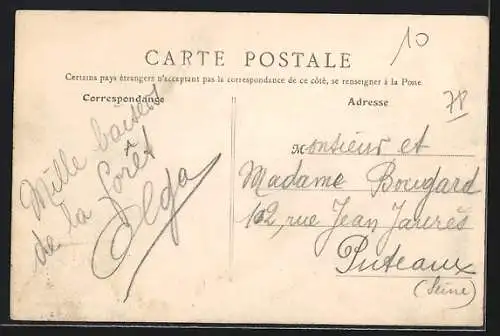 10
CARTE POSTALE
Certains pays étrangers n'acceptant pas la correspondance de ce côté, se renseigner à la Poste
Correspondance
Adresse
78
Mille baisers
de la forêt
Olga
Monsieur et
Madame Bougard
102, rue Jean Jaurès
Puteaux
(Seine)